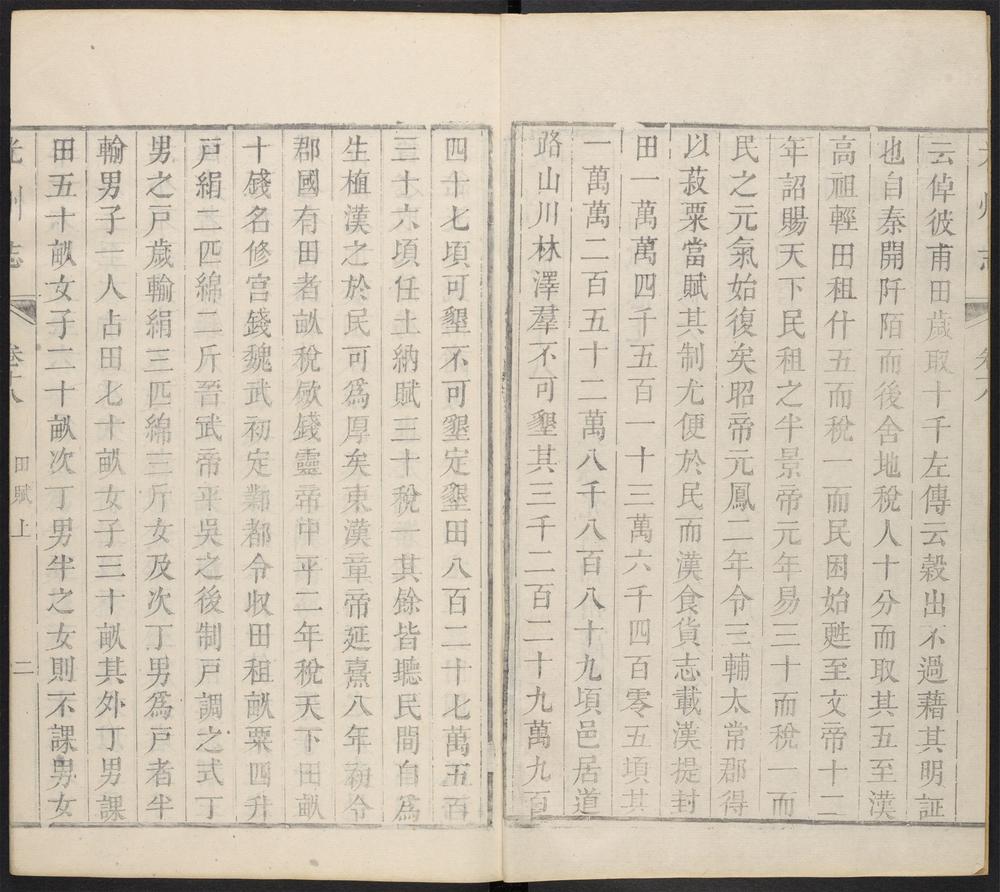 云倬彼甫田歲取十千左傳云穀出不過藉其明証
也自秦開阡陌而後舍地稅人十分而取其五至漢
高祖輕田租什五而稅一而民困始甦至文帝十二
年詔賜天下民租之半景帝元年易三十而稅一而
民之元氣始復矣昭帝元鳳二年令三輔太常郡得
以菽粟當賦其制尤便於民而漢食貨志載漢提封
田一萬萬四千五百一十三萬六千四百零五頃其
一萬萬二百五十二萬八千八百八十九頃邑居道
路山川林澤羣不可墾其三千二百二十九萬九百
四十七頃可墾不可墾定墾田八百二十七萬五百
三十六頃任土納賦三十稅一其餘皆聽民間自爲
生植漢之於民可爲厚矣東漢章帝延熹八年初令
郡國有田者畝稅歛錢靈帝中平二年稅天下田畝
十錢名修宮錢魏武初定鄴都令収田租畝粟四升
戸絹二匹綿二斤晉武帝平吳之後制戸調之式丁
男之戸歲輸絹三匹綿三斤女及次丁男爲戸者半
輸男子一人占田七十畝女子三十畝其外丁男課
田五十畝女子二十畝次丁男半之女則不課男女
光州志
卷十八
田賦上
二